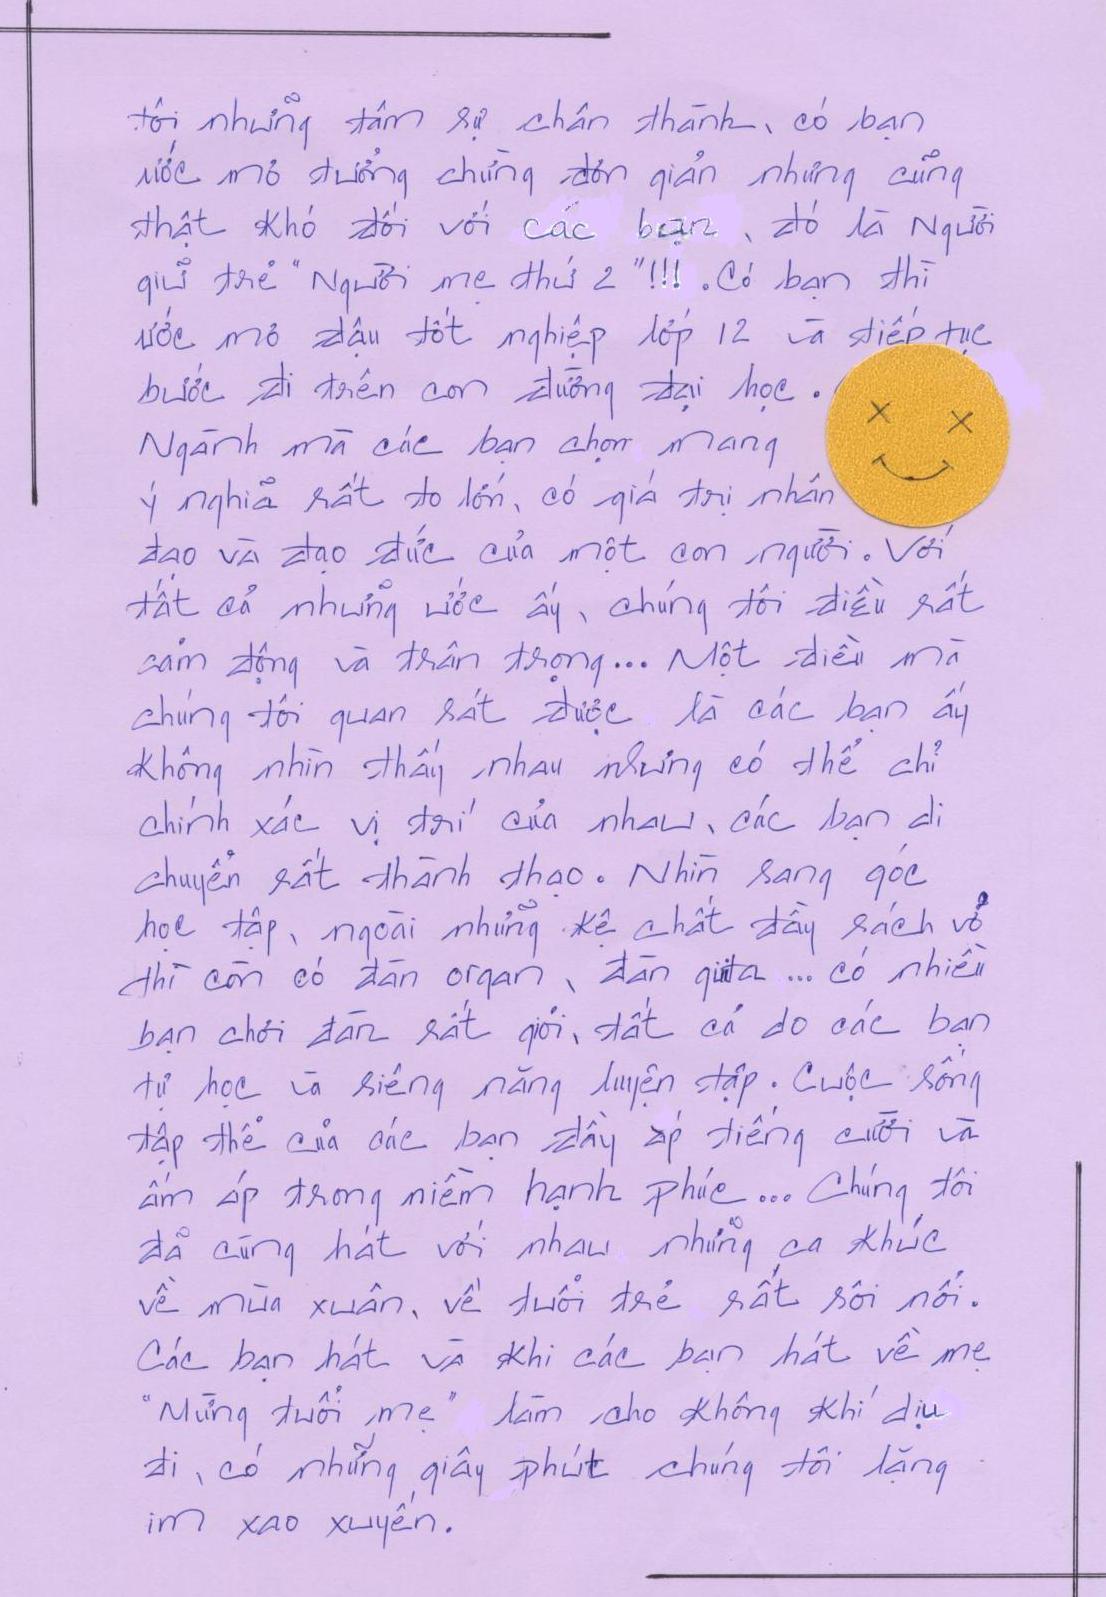 tôi những tâm sự chân thành, có bạn
ước mơ tưởng chừng đơn giản nhưng cũng
thật khó đối với các bạn, đó là Người
giữ trẻ "Người mẹ thứ 2"!!!. Có bạn thì
ước mơ đậu tốt nghiệp lớp 12 và tiếp tục
bước đi trên con đường đại học.
Ngành mà các bạn chọn mang
ý nghĩa rất to lớn, có giá trị nhân
đạo và đạo đức của một con người. Với
tất cả những ước ấy, chúng tôi điều rất
cảm động và trân trọng... Một điều mà
chúng tôi quan sát được là các bạn ấy
không nhìn thấy nhau nhưng có thể chỉ
chính xác vị trí của nhau, các bạn di
chuyển rất thành thạo. Nhìn sang góc
học tập, ngoài những kệ chất đầy sách vở
thì còn có đàn organ, đàn guita... có nhiều
bạn chơi đàn rất giỏi, tất cả do các bạn
tự học và siêng năng luyện tập. Cuộc sống
tập thể của các bạn đầy ắp tiếng cười và
ấm áp trong niềm hạnh phúc... Chúng tôi
đã cùng hát với nhau những ca khúc
về mùa xuân, về tuổi trẻ rất sôi nổi.
Các bạn hát và khi các bạn hát về mẹ
"Mừng tuổi mẹ" làm cho không khí dịu
đi, có những giây phút chúng tôi lặng
im xao xuyến.